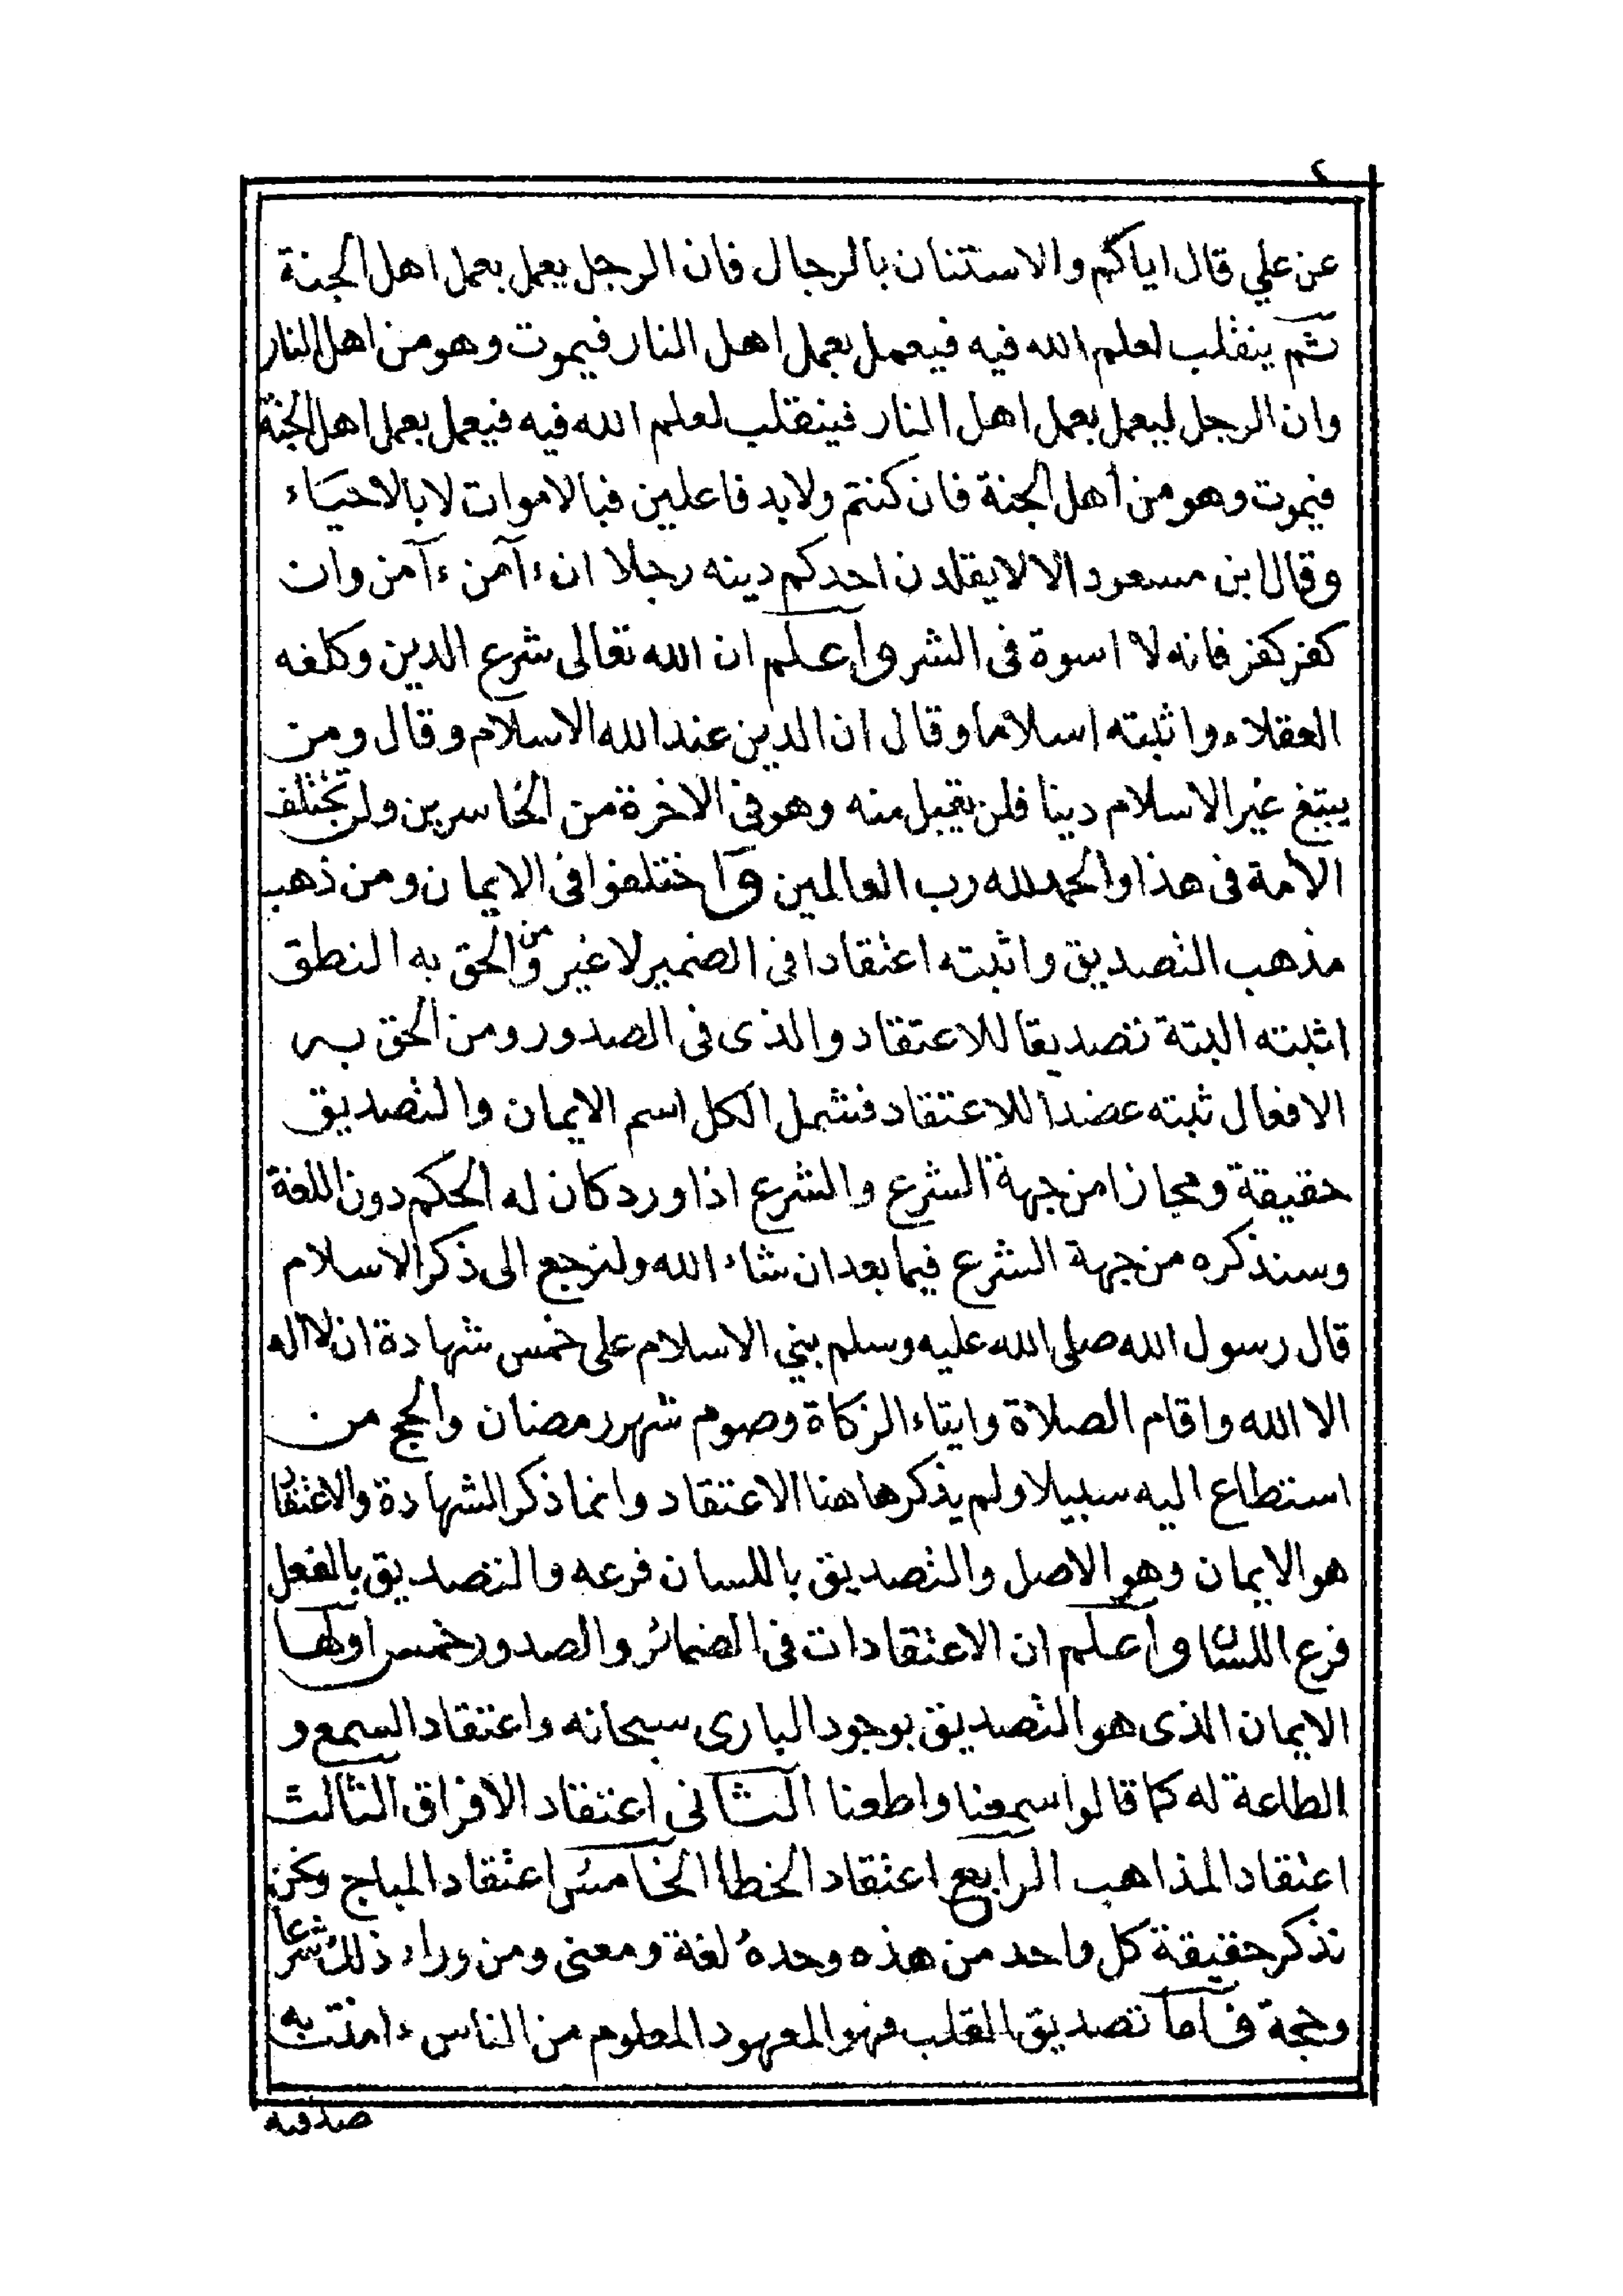 ٤
عن علي قال اياكم والاستنان بالرجال فان الرجل يعمل بعمل اهل الجنة
ثم ينقلب لعلم الله فيه فيعمل بعمل اهل النار فيموت وهو من اهل النار
وان الرجل ليعمل بعمل اهل النار فينقلب لعلم الله فيه فيعمل بعمل اهل الجنة
فيموت وهو من أهل الجنة فان كنتم ولابد فاعلين فبالاموات لا بالاحياء
وقال ابن مسعود الا لا يقلدن احدكم دينه رجلا ان ءآمن ءآمن وان
كفر كفر فانه لا اسوة فى الشر واعلم ان الله تعالى شرع الدين وكلفه
العقلاء واثبته اسلاما وقال ان الدين عند الله الاسلام وقال ومن
يبتغ غير الاسلام دينا فلن يقبل منه وهو فى الاخرة من الخاسرين ولن تختلف
الأمة فى هذا والحمد لله رب العالمين واختلفوا فى الايمان ومن ذهب
مذهب التصديق واثبته اعتقادا فى الضمير لا غير ومن الحق به النطق
اثبته البتة تصديقا للاعتقاد والذى فى الصدور ومن الحق به
الافعال ثبته عضدا للاعتقاد فشمل الكل اسم الايمان والتصديق
حقيقة ومجازا من جهة الشرع والشرع اذا ورد كان له الحكم دون اللغة
وسنذكره من جهة الشرع فيما بعد ان شاء الله ولنرجع الى ذكر الاسلام
قال رسول الله صلى الله عليه وسلم بني الاسلام على خمس شهادة ان لا اله
الا الله واقام الصلاة وايتاء الزكاة وصوم شهر رمضان والحج من
استطاع اليه سبيلا ولم يذكر هاهنا الاعتقاد وانما ذكر الشهادة والاعتقاد
هو الايمان وهو الاصل والتصديق باللسان فرعه والتصديق بالفعل
فرع اللسان واعلم ان الاعتقادات فى الضمائر والصدور خمس اولها
الايمان الذى هو التصديق بوجود البارى سبحانه واعتقاد السمع و
الطاعة له كما قالوا سمعنا واطعنا الثانى اعتقاد الافراق الثالث
اعتقاد المذاهب الرابع اعتقاد الخطا الخامس اعتقاد المباح ونحن
نذكر حقيقة كل واحد من هذه وحدهُ لغة ومعنى ومن وراء ذلك شرعا
وحجة فاما تصديق القلب فهو المعهود المعلوم من الناس ءامنت به
صدقته